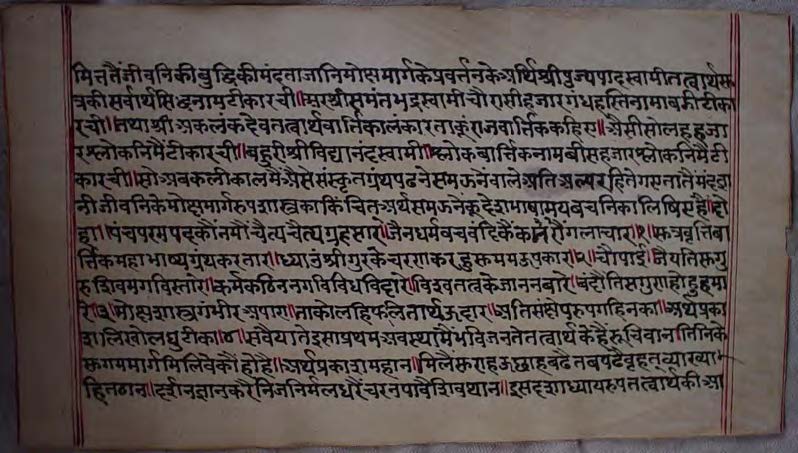 मित्ततैंजीवनिकीबुद्धिकीमंदताजानिमोक्षमार्गकेप्रवर्त्तनकेअर्थिश्रीपूज्यपादस्वामीतत्वार्थसू
त्रकीसर्वार्थसिद्धनामटीकारची॥अरश्रीसमंतभद्रस्वामीचौरासीहजारगंधहस्तिनामावडीटीका
रची॥तथाश्रीअकलंकदेवतत्वार्थवार्त्तिकालंकारताकूंराजवार्त्तिककहिए॥ऐसीसोलहहजा
रश्लोकनिमैंटीकारची॥बहुरीश्रीविद्यानंदस्वामी॥श्लोकवार्त्तिकनामबीसहजारश्लोकनिमैंटी
कारची॥सोअबकलीकालमेंऐसेसंस्कृतग्रंथपढनेसमऊनेंवालेअतिअल्परहिगेगएतातैमंदज्ञा
नीजीवनिकेमोक्षमार्गरुपशास्त्रकाकिंचितअर्थसमऊनेकूदेशभाषामयवचनिकालिषिएहै॥दो
हा॥पंचपरमपदकौंनमौंचैत्यचैत्यगृहसार॥जैनधर्मवचवंदिकैं॥१॥सूत्रवृत्तिवा
र्त्तिकमहाभाष्यग्रंथकरतार॥ध्याउंश्रीगुरकेचरणकरहुसुममउपकार॥२॥चौपाई॥जैयतिसुगु
रुशिवमगविस्तारे॥कर्मकठिननगविविधविदारे॥विश्वतत्वकेजाननवारे॥बंदौतिसगुणहोहुहमा
रे॥३॥मोक्षशास्त्रगंभीरअपारा॥ताकोलहिफलितार्थऊदार॥अतिसंक्षेपुरुपगहिनका॥अर्थप्रका
शलिखोलघुटीका॥४॥सवैया॥तेइसाप्रथमअवस्थामैंभविजनतेतत्वार्थकेहैंरुचिवान॥तिनिके
सुगममार्गमिलिवेकौंहोहै॥अर्थप्रकाशमहान॥मिलैसुराहऊछाहबढैतबपढैवृहतव्याख्या
हिठान॥दर्शनज्ञानकरैनिजनिर्मलधरैंचरनपावैशिवथान॥इसदशाध्यायरुपतत्वार्थकीआ